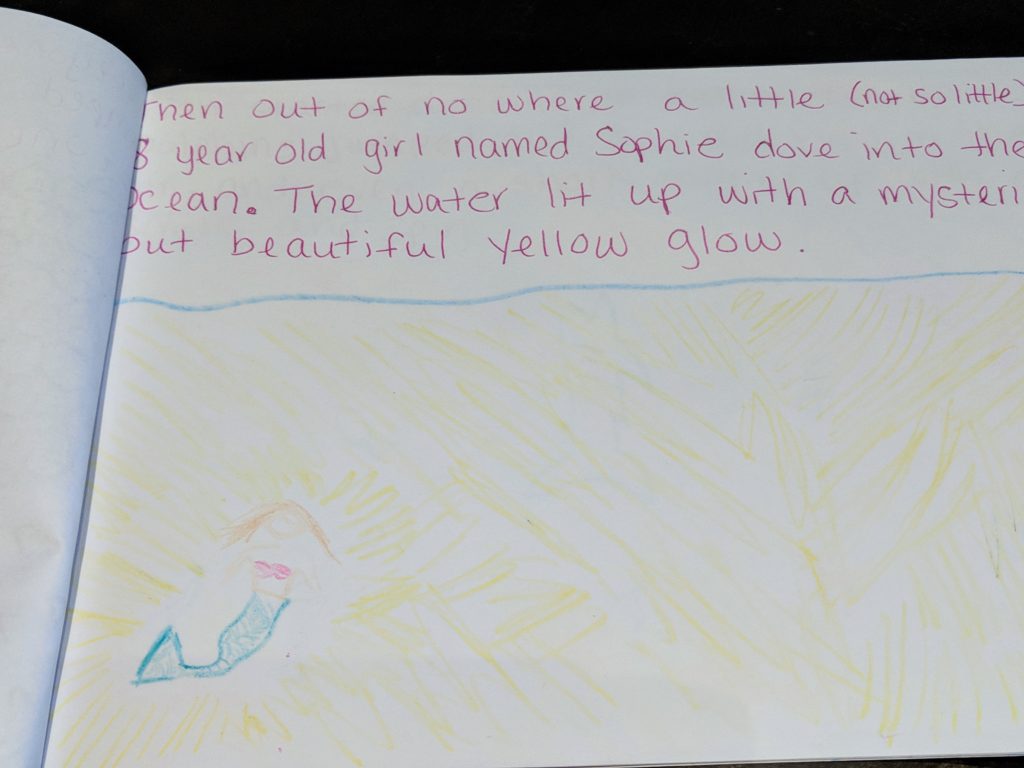 Then out of no where a little (not so little)
8 year old girl named Sophie dove into the
ocean. The water lit up with a mysteri
but beautiful yellow glow.